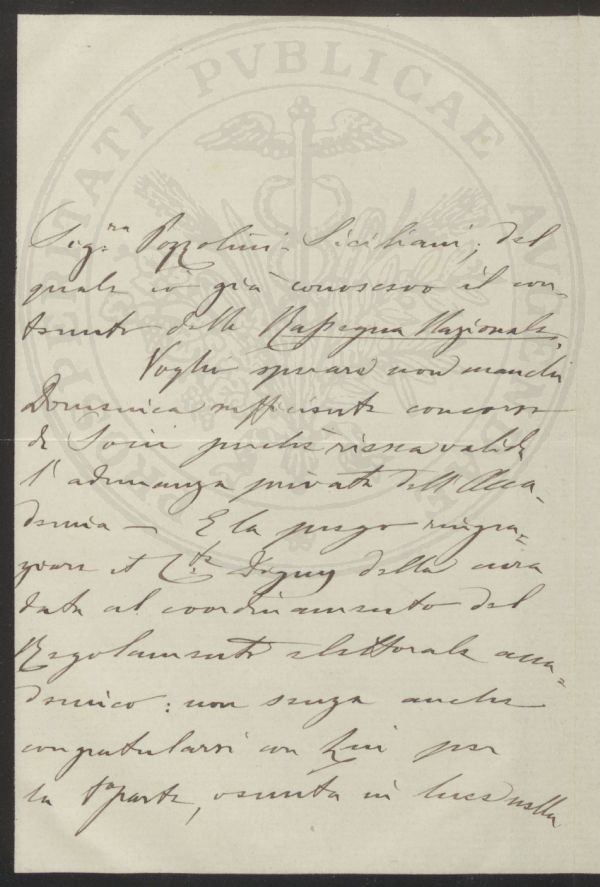 PROSPERITATI PVBLICAE AVGENDAE
Sig.ra Pozzolini-Siciliani, del
quale io già conoscevo il con-
tenuto dalla Rassegna Nazionale.
Voglio sperare non manchi
Domenica sufficiente concorso
di Socii perchè riesca valida
l'adunanza privata dell'Acca-
demia — E la prego ringra-
ziare il C.te Digny della cura
data al coordinamento del
Regolamento elettorale acca-
demico: non senza anche
congratularsi con Lui per
la 1a parte, venuta in luce nella